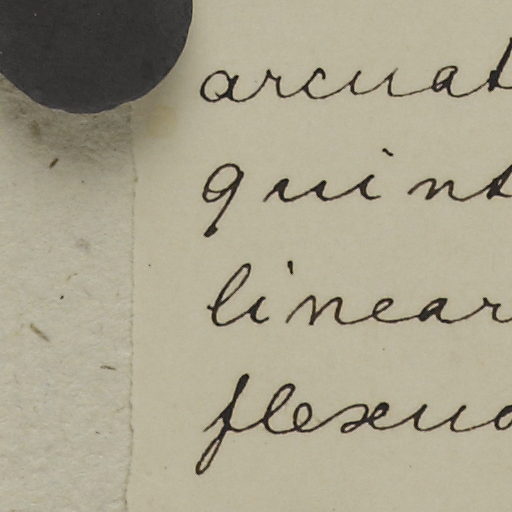 arcuat
quint
linear
flexuo